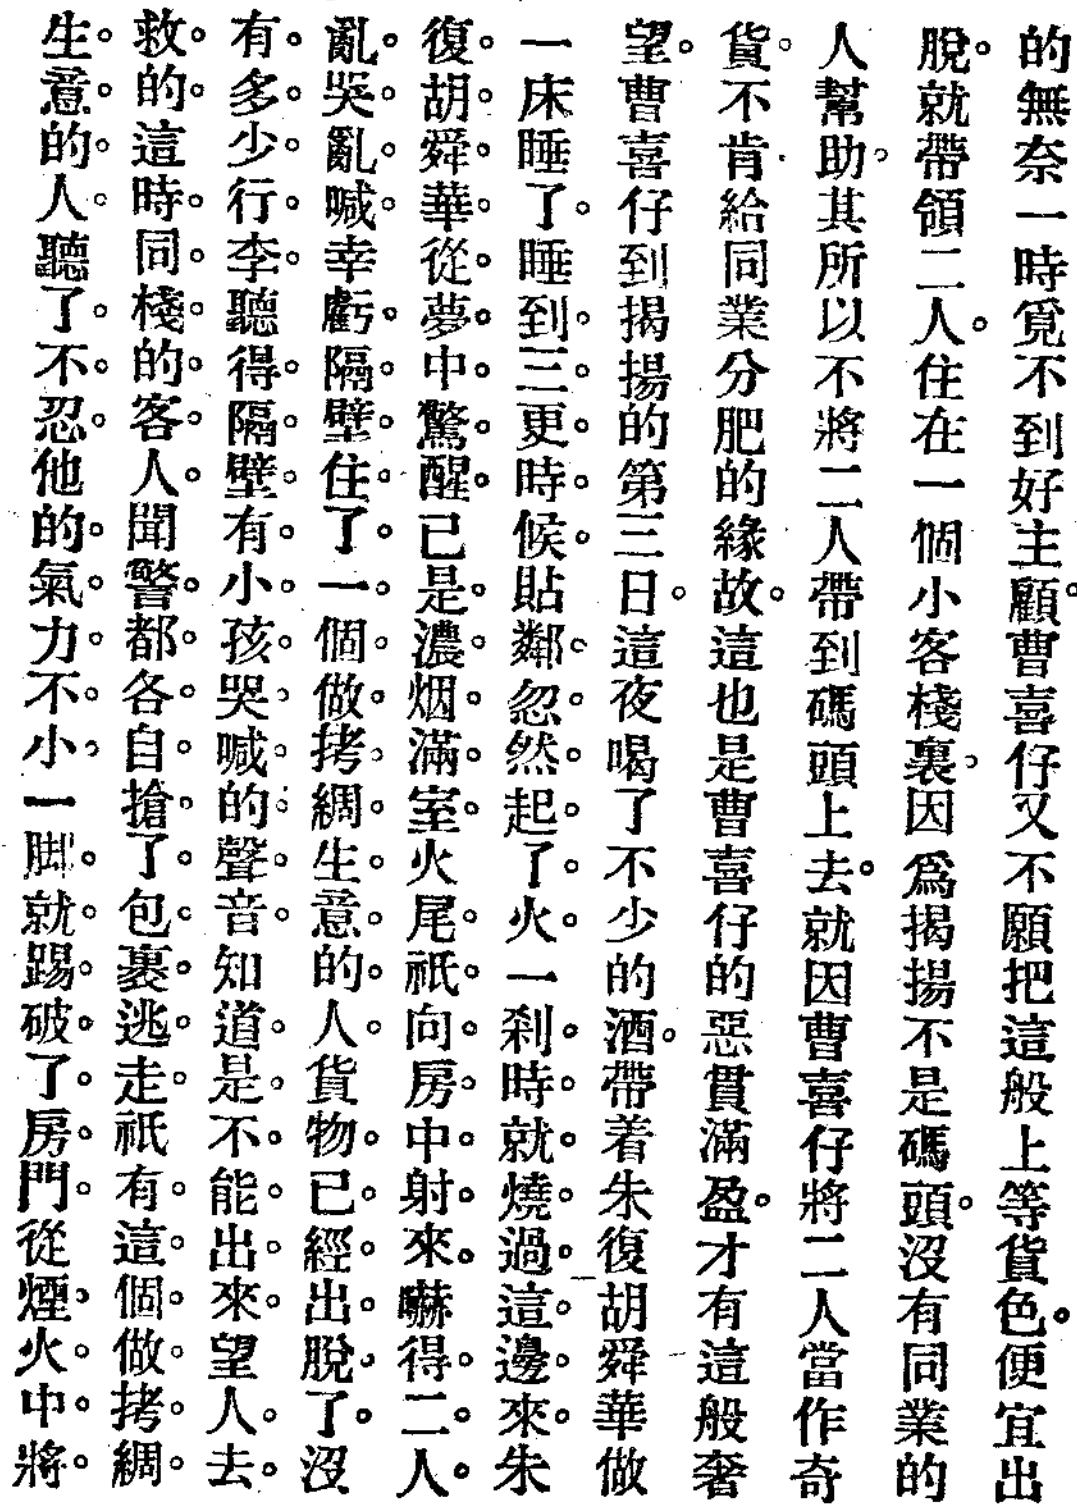 的無奈一時覓不到好主顧。曹喜仔又不願把這般上等貨色。便宜出
脫。就帶領二人。住在一個小客棧裏。因爲揭揚不是碼頭。沒有同業的
人幫助。其所以不將二人帶到碼頭上去。就因曹喜仔將二人當作奇
貨。不肯給同業分肥的緣故。這也是曹喜仔的惡貫滿盈。才有這般奢
望。曹喜仔到揭揚的第三日。這夜喝了不少的酒。帶着朱復胡舜華做
一床睡了。睡到。三。更。時。候。貼鄰。忽。然。起。了。火。一刹。時。就。燒。過。這。邊。來。朱
復。胡。舜。華。從。夢。中。驚。醒。已是。濃。烟。滿。室。火尾。祇。向。房。中。射。來。嚇得。二。人。
亂。哭。亂。喊。幸虧。隔。壁。住。了。一。個。做。拷。綢。生。意。的。人。貨物。已。經。出。脫。了。沒
有。多。少。行。李。聽得。隔。壁。有。小。孩。哭。喊。的。聲。音。知道。是。不。能。出。來。望人。去。
救。的。這時。同。棧。的。客。人。聞警。都。各。自。搶。了。包。裹。逃。走。祇有。這。個。做。拷。綢。
生。意。的。人。聽了。不。忍。他的。氣。力。不。小。一脚。就。踢。破。了。房。門。從煙。火。中。將。